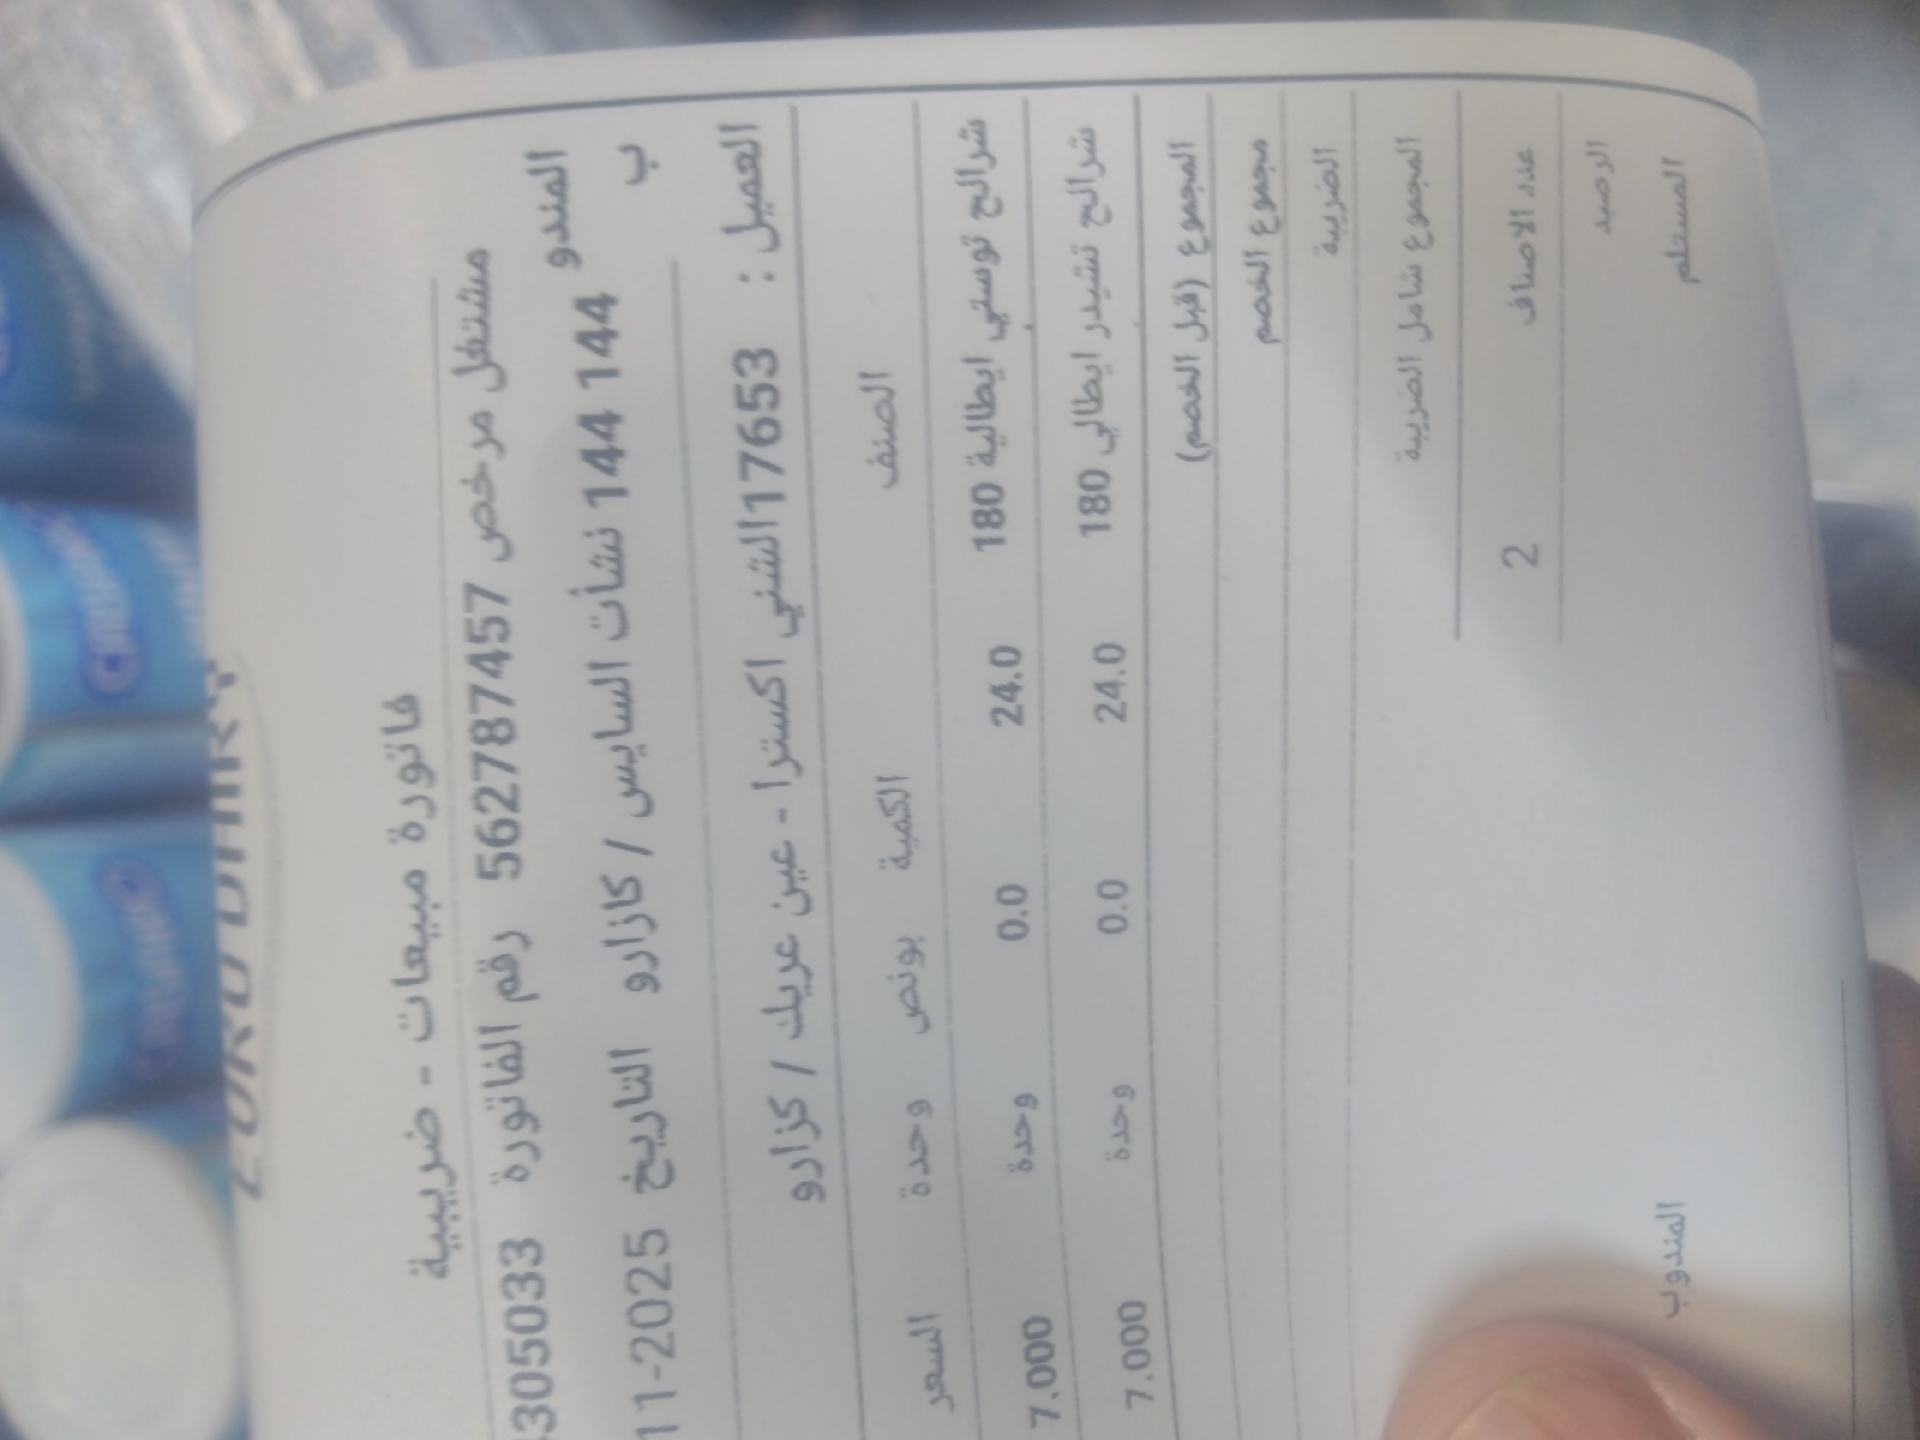 فاتورة مبيعات - ضريبية
مشتغل مرخص 562787457 رقم الفاتورة 305033
المندوب 144 144 نشأت السايس / كازارو التاريخ 11-2025
العميل : 17653الشني اكسترا - عين عريك / كزارو
الصنف الكمية بونص وحدة السعر
شرائح توستي ايطالية 180 24.0 0.0 وحدة 7.000
شرائح تشيدر ايطالي 180 24.0 0.0 وحدة 7.000
المجموع (قبل الخصم)
مجموع الخصم
الضريبة
المجموع شامل الضريبة
عدد الاصناف 2
الرصيد
المستلم المندوب